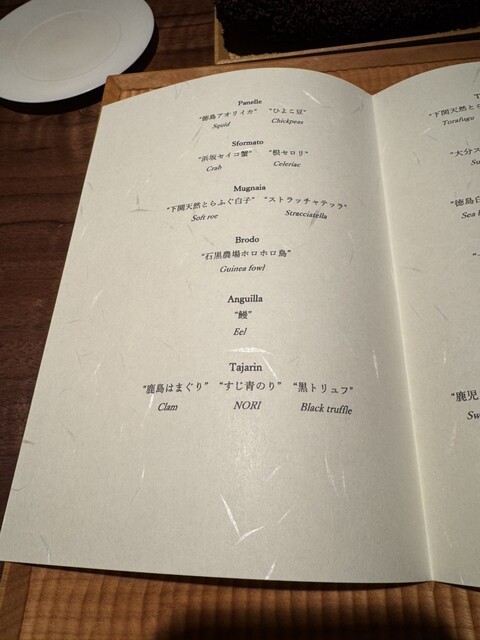 Panelle
"徳島アオリイカ" "ひよこ豆"
Squid Chickpeas
Sformato
"浜坂セイコ蟹" "根セロリ"
Crab Celeriac
Mugnaia
"下関天然とらふぐ白子" "ストラッチャテッラ"
Soft roe Stracciatella
Brodo
"石黒農場ホロホロ鳥"
Guinea fowl
Anguilla
"鰻"
Eel
Tajarin
"鹿島はまぐり" "すじ青のり" "黒トリュフ"
Clam NORI Black truffle
T
"下関天然と
Torafugu
"大分ス
Su
"徳島白
Sea b
"鹿児
Sw